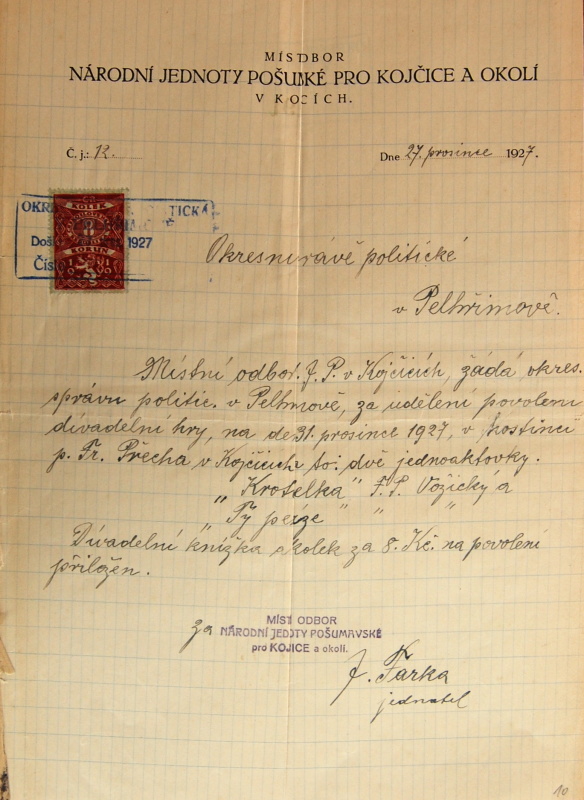 MÍSTDBOR
NÁRODNÍ JEDNOTY POŠUMKÉ PRO KOJČICE A OKOLÍ
V KOCÍCH.
Č. j.: 12.
Dne 27. prosince 1927.
KOLEK
KORUN
TICKÁ
Doš 1927
Čís
Okresnirávě politické
v Pelhřimově.
Místní odbor. J. P. v Kojčicích, žádá okres.
správu politic. v Pelhmově, za udělení povolení
divadelní hry, na de 31. prosince 1927, v hostinci
p. Fr. Přecha v Kojčicích to: dvě jednoaktovky.
„Krotelka" F. S. Vožický a
„Ty peíze " " "
Divadelní knížka a kolek za 8. Kč. na povolení
přiložen.
za
MÍST ODBOR
NÁRODNÍ JEDOTY POŠUMAVSKÉ
pro KOJICE a okolí.
J. Farka
jednatel
10